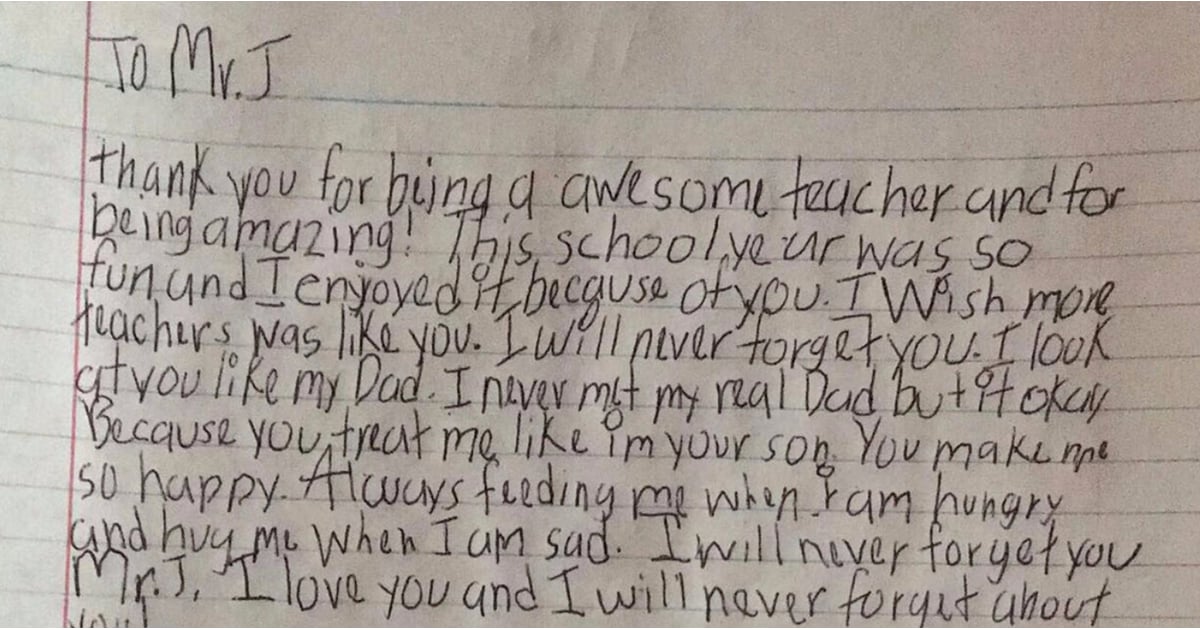 To Mr. J
thank you for being a awesome teacher and for
being amazing! This school year was so
fun and I enjoyed it because of you. I Wish more
teachers was like you. I will never forget you. I look
at you like my Dad. I never met my real Dad but it okay
Because you treat me like im your son. You make me
so happy. Always feeding me when I am hungry
and hug me when I am sad. I will never forget you
Mr. J. I love you and I will never forget about
you!